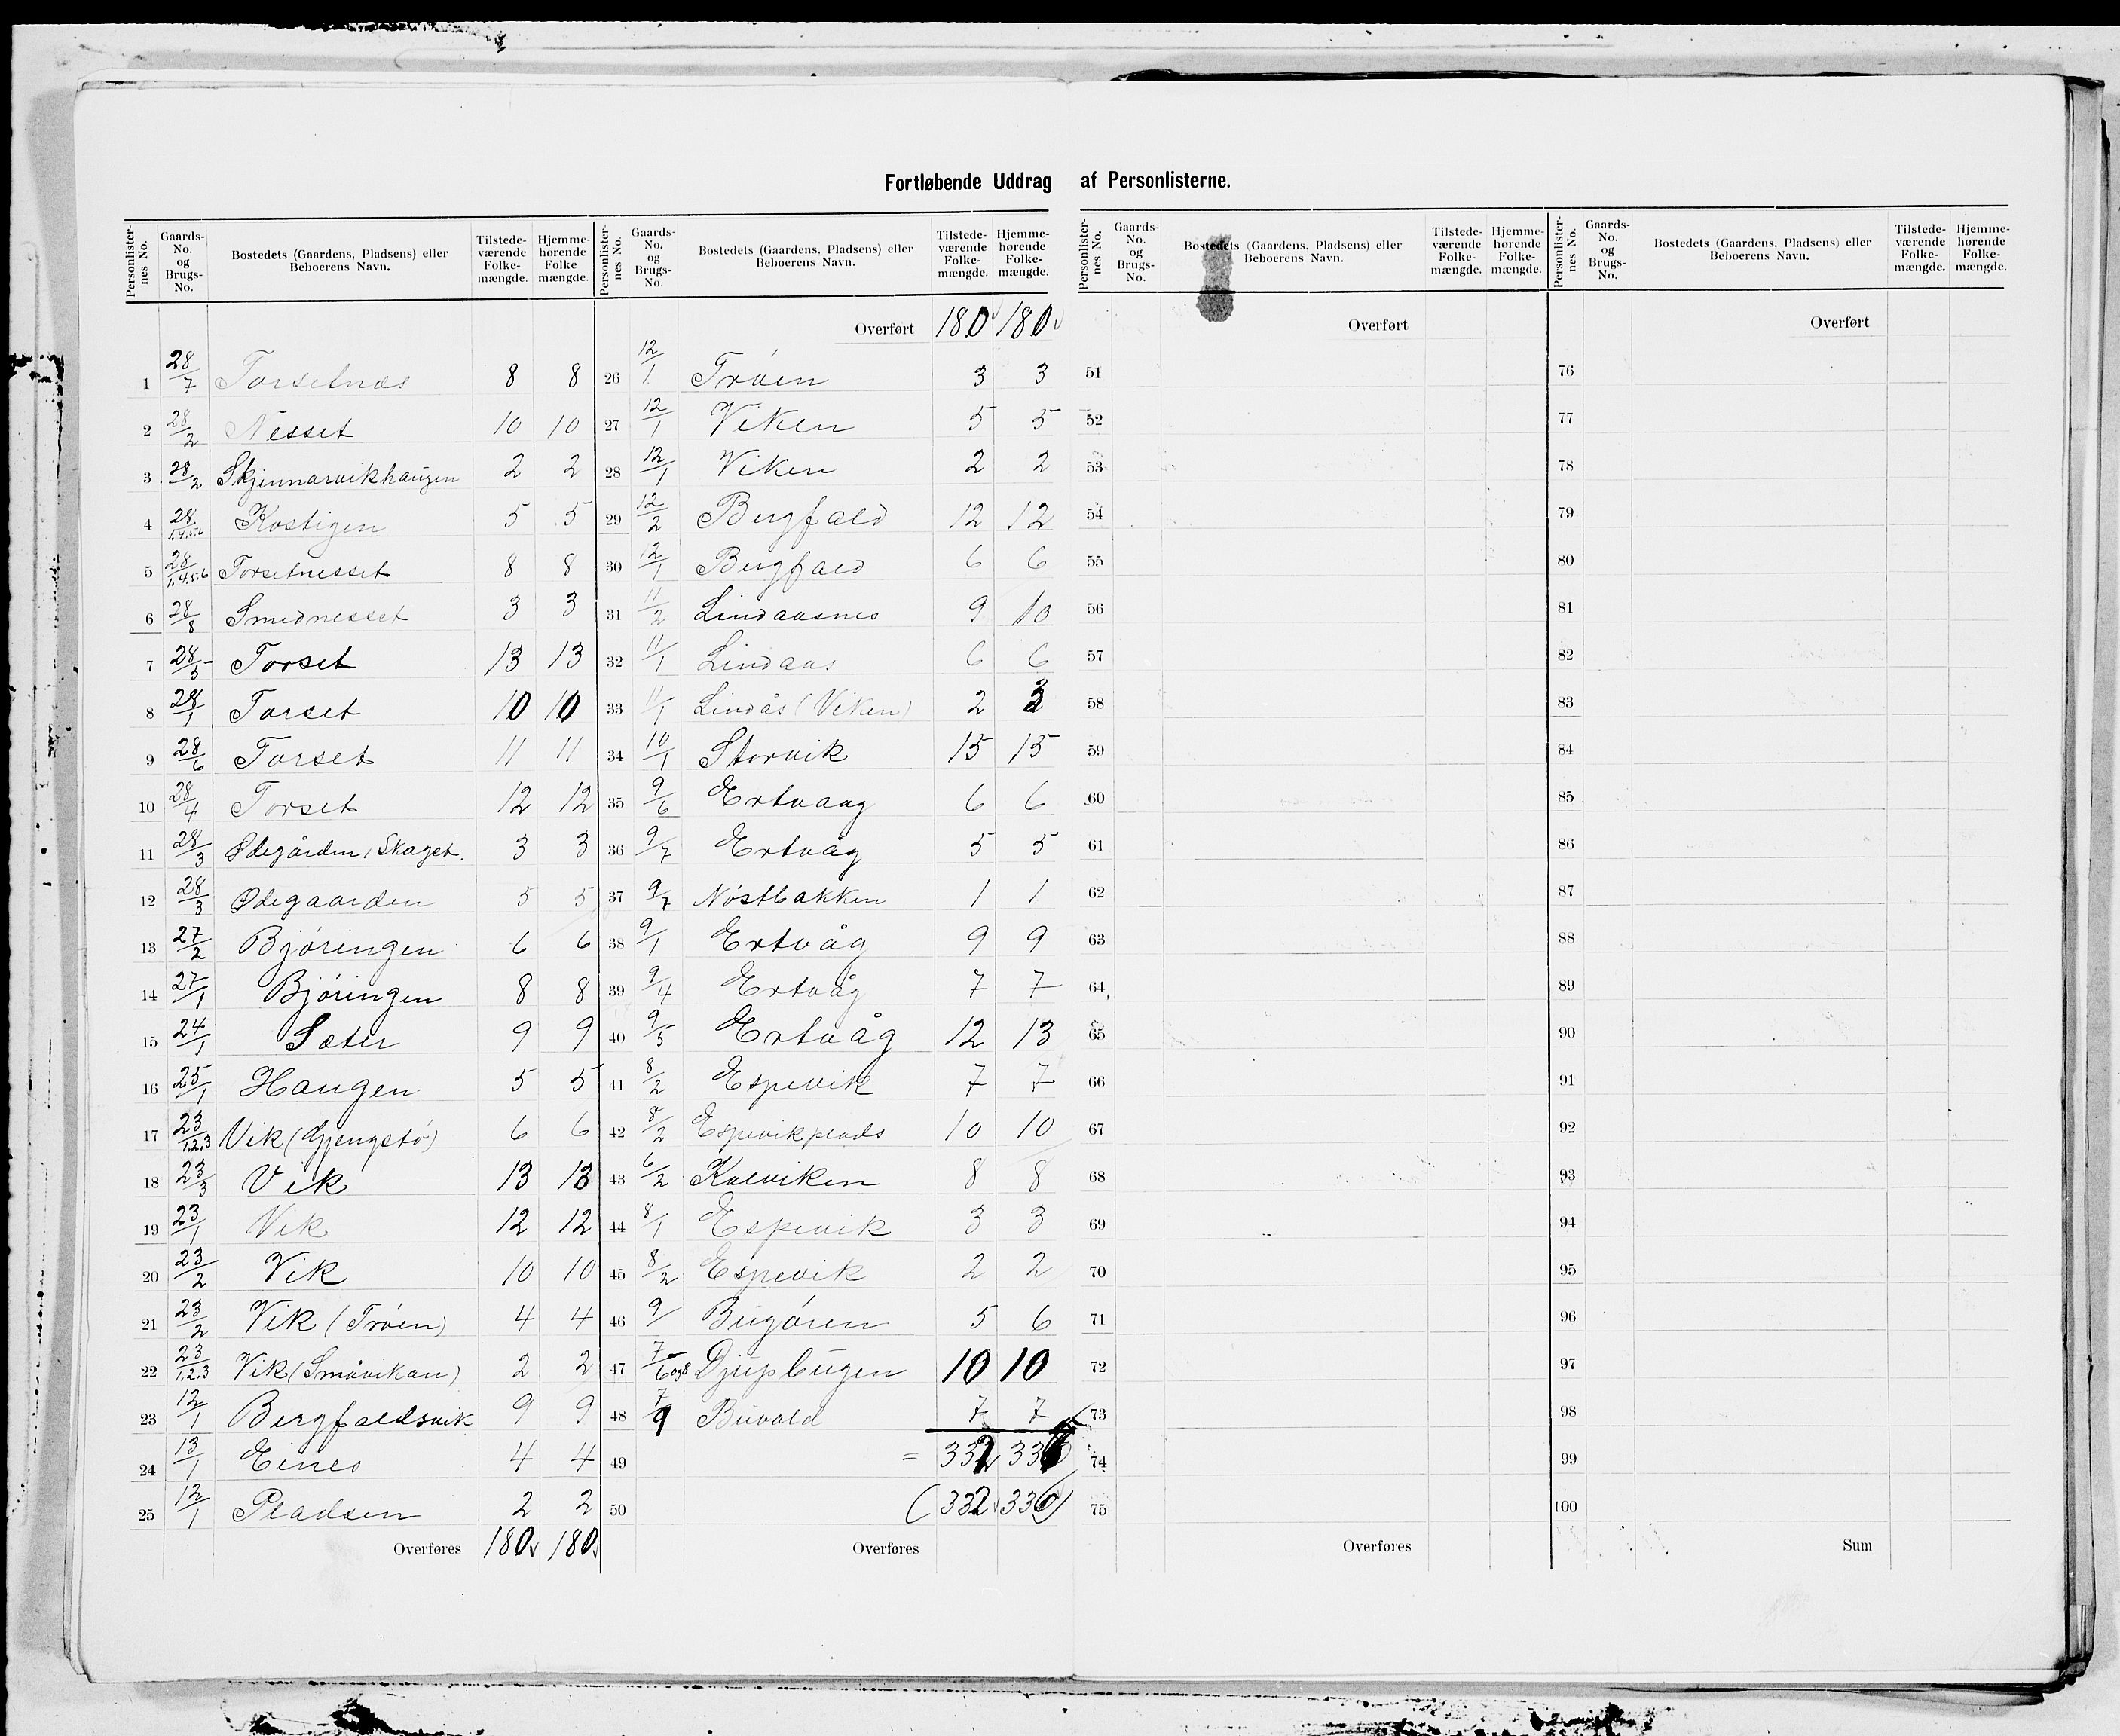 Fortløbende Uddrag af Personlisterne.
Personlisternes No. Gaards-No. og Brugs-No. Bostedets (Gaardens, Pladsens) eller Beboerens Navn. Tilstedeværende Folkemængde. Hjemmehørende Folkemængde.
1 28/7 Torsetnæs 8 8
2 28/2 Nesset 10 10
3 28/2 Skjennarvikhaugen 2 2
4 28/1.4.5.6 Kostigen 5 5
5 28/1.4.5.6 Torsetnesset 8 8
6 28/8 Smednesset 3 3
7 28/5 Torset 13 13
8 28/1 Torset 10 10
9 28/6 Torset 11 11
10 28/4 Torset 12 12
11 28/3 Ødegården, Skaget. 3 3
12 28/3 Ødegaarden 5 5
13 27/2 Bjøringen 6 6
14 27/1 Bjøringen 8 8
15 24/1 Sæter 9 9
16 25/1 Haugen 5 5
17 23/1.2.3 Vik (Gjengstø) 6 6
18 23/3 Vik 13 13
19 23/1 Vik 12 12
20 23/2 Vik 10 10
21 23/2 Vik (Trøen) 4 4
22 23/1.2.3 Vik (Småvikan) 2 2
23 12/1 Bergfaldsvik 9 9
24 13/1 Eines 4 4
25 12/1 Pladsen 2 2
Overføres 180 180
Personlisternes No. Gaards-No. og Brugs-No. Bostedets (Gaardens, Pladsens) eller Beboerens Navn. Tilstedeværende Folkemængde. Hjemmehørende Folkemængde.
Overført 180 180
26 12/1 Trøen 3 3
27 12/1 Viken 5 5
28 12/1 Viken 2 2
29 12/2 Bergfald 12 12
30 12/1 Bergfald 6 6
31 11/2 Lindaasnes 9 10
32 11/1 Lindaas 6 6
33 11/1 Lindås (Viken) 2 3
34 10/1 Storvik 15 15
35 9/6 Ertvaag 6 6
36 9/7 Ertvåg 5 5
37 9/7 Nøstbakken 1 1
38 9/1 Ertvåg 9 9
39 9/4 Ertvåg 7 7
40 9/5 Ertvåg 12 13
41 8/2 Espevik 7 7
42 8/2 Espevikplads 10 10
43 6/2 Kalviken 8 8
44 8/1 Espevik 3 3
45 8/2 Espevik 2 2
46 9/ Bugøren 5 6
47 7/6 og 8 Djupbugen 10 10
48 7/9 Buvold 7 7
49 = 332 336
50 (332 336)
Overføres
Personlisternes No. Gaards-No. og Brugs-No. Bostedets (Gaardens, Pladsens) eller Beboerens Navn. Tilstedeværende Folkemængde. Hjemmehørende Folkemængde.
Overført
51
52
53
54
55
56
57
58
59
60
61
62
63
64
65
66
67
68
69
70
71
72
73
74
75
Overføres
Personlisternes No. Gaards-No. og Brugs-No. Bostedets (Gaardens, Pladsens) eller Beboerens Navn. Tilstedeværende Folkemængde. Hjemmehørende Folkemængde.
Overført
76
77
78
79
80
81
82
83
84
85
86
87
88
89
90
91
92
93
94
95
96
97
98
99
100
Sum